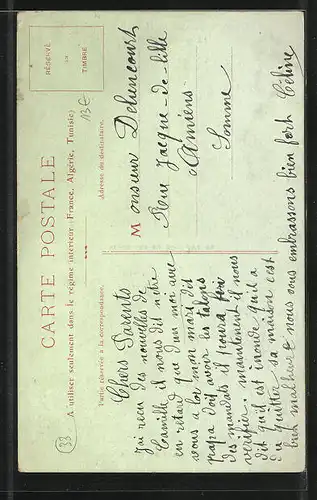 CARTE POSTALE
A utiliser seulement dans le régime intérieur (France, Algérie, Tunisie)
RÉSERVÉ
AU
TIMBRE
13€
33
Partie réservée à la correspondance.
Chers Parents
J'ai reçu des nouvelles de
Camille il nous dit être
en retard que d'un moi avec
vous a lor mon mari dit
papa doit avoir les talons
des mandats il pourra
verifier. maintenant il nous
dit qu'il est inondé qu'il a
du quitter sa maison c'est
bien malheur nous vous embrassons bien fort Céline
Adresse du destinataire.
Monsieur
Rue Jacque-de-lille
Amiens
Somme